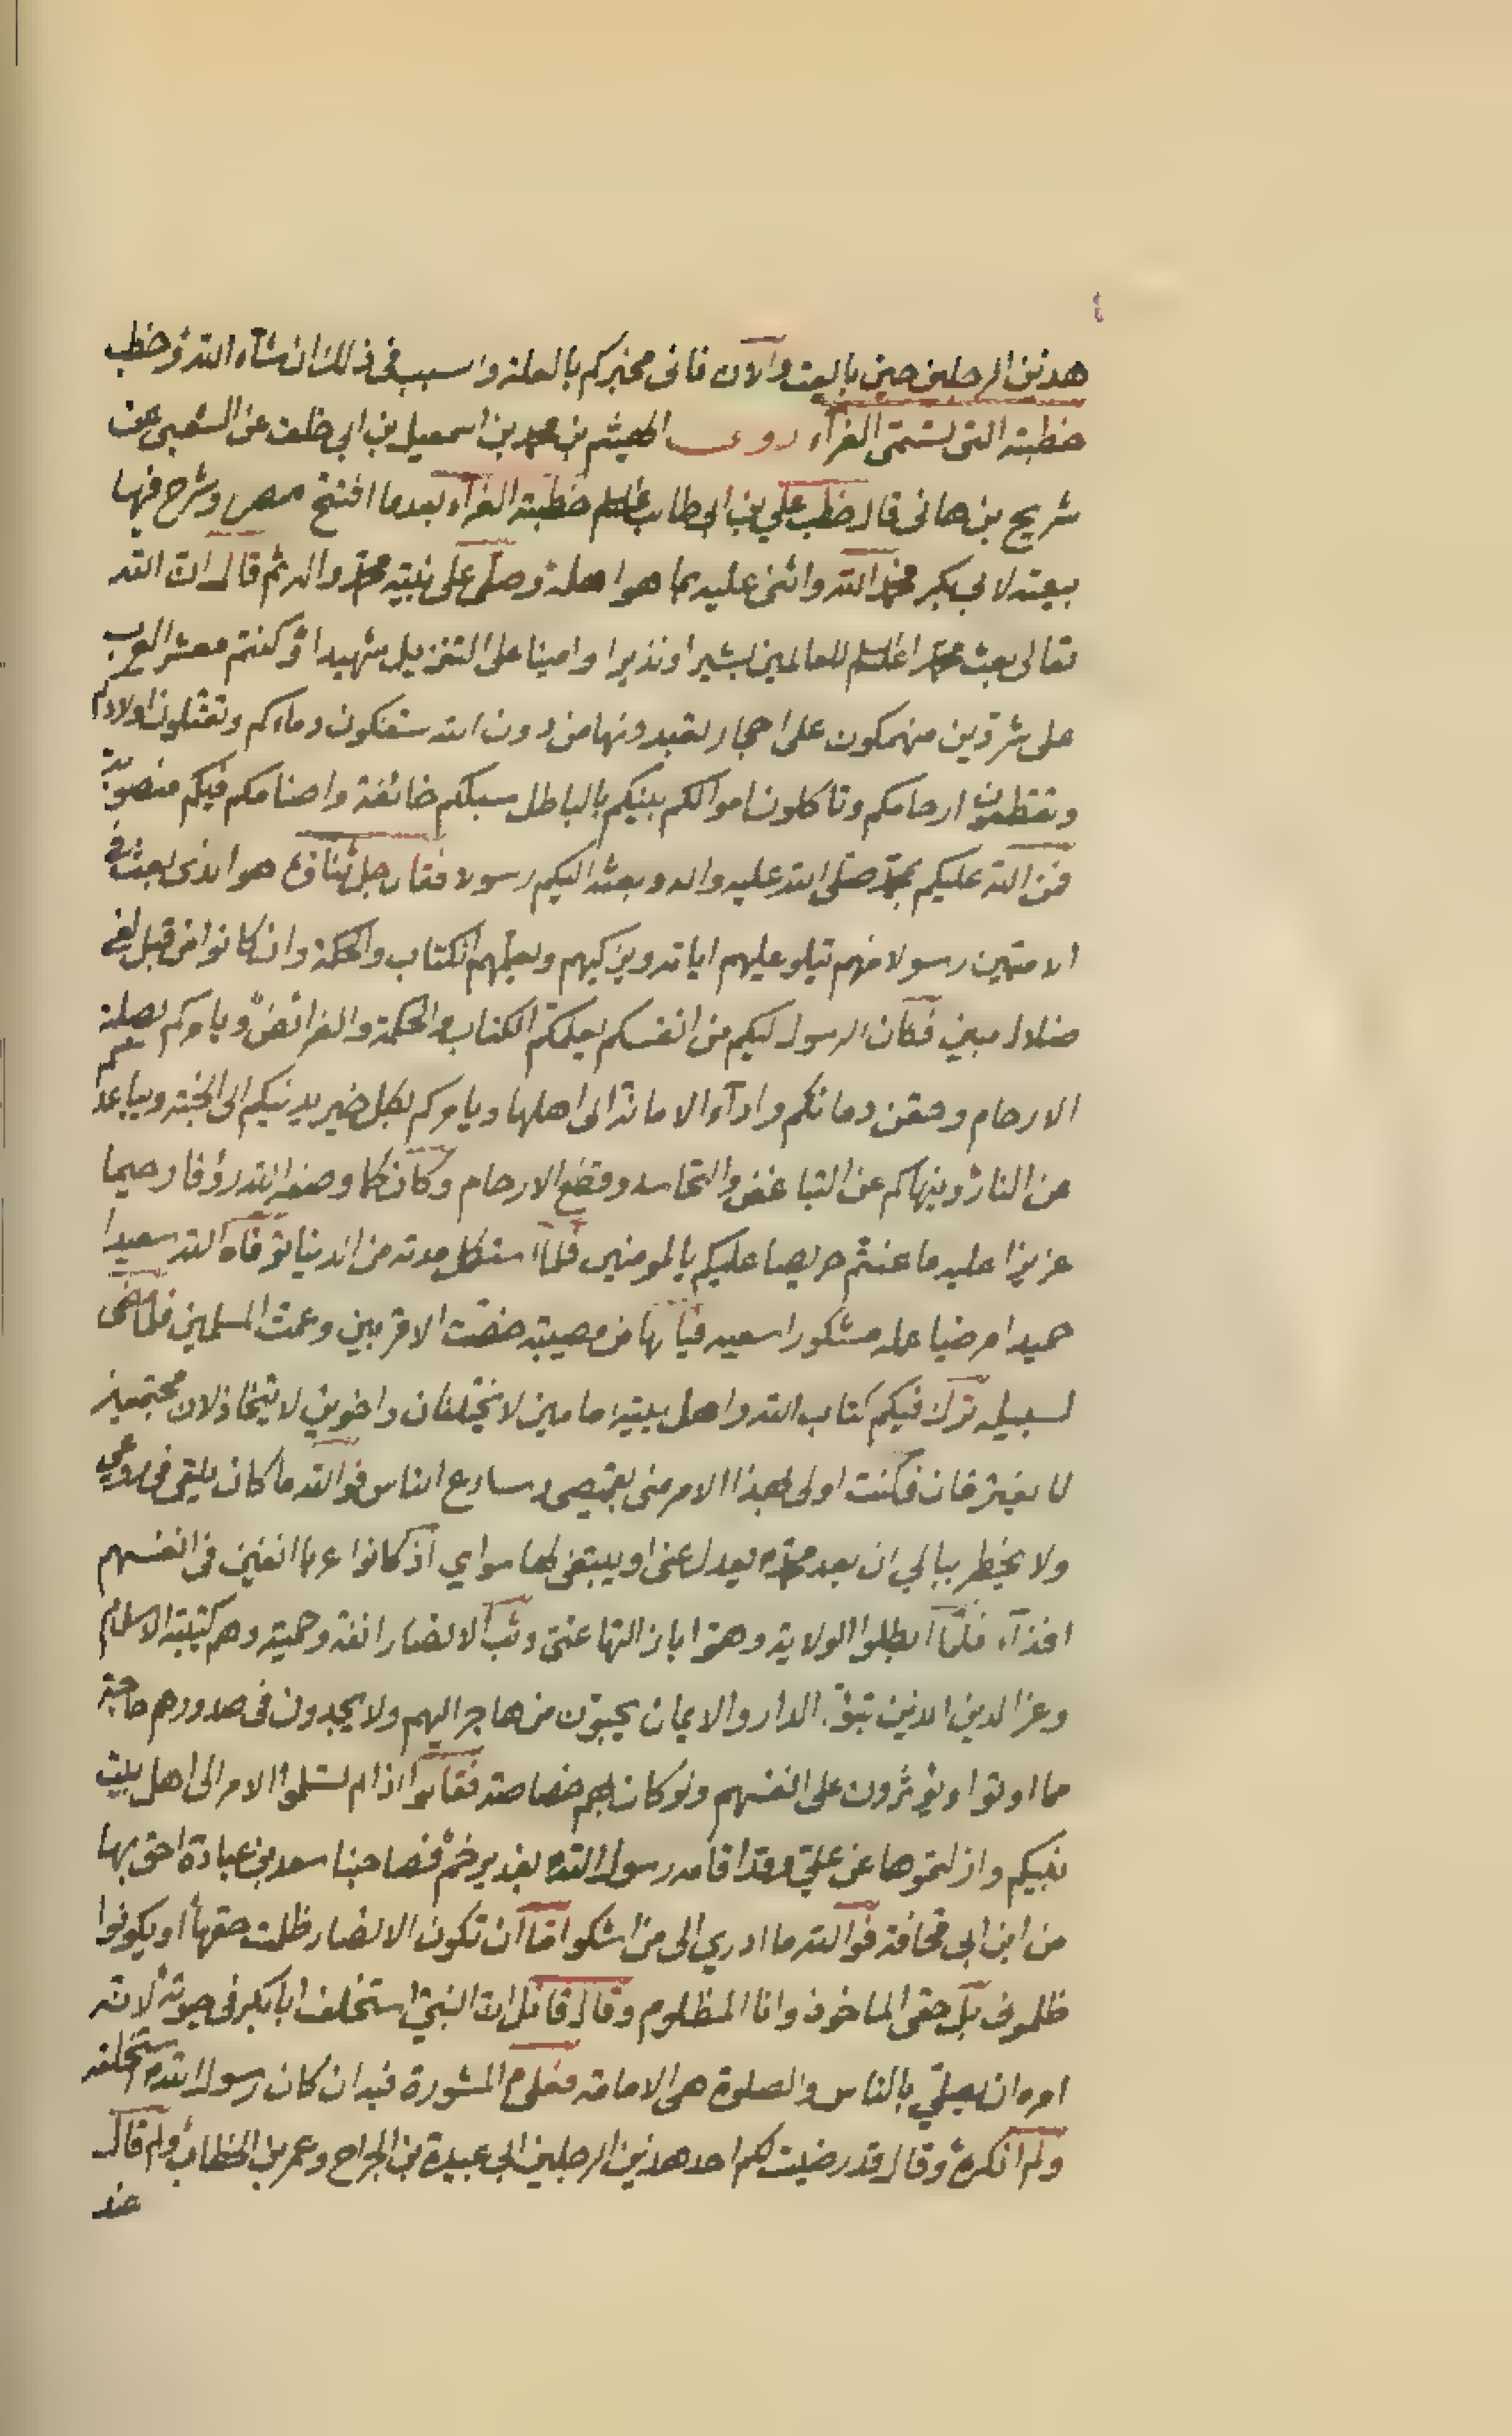 هذين الرجلين حين بايعت والآن فانى مخبركم بالعلة والسبب فى ذلك ان شآء الله وخطب
خطبته التى تسمى الغرآء روى الهيثم بن محمد بن اسمعيل بن ابى خلف عن الشعبى عن
شريح بن هانى قال خطب على بن ابى طالب خطبته الغرآء بعدما افتتح مصر وشرح فيها
بيعته لابى بكر فحمد الله واثنى عليه بما هو اهله وصلى على نبيه محمد واله ثم قال ان الله
تعالى بعث محمدا للعالمين بشيرا ونذيرا وامينا على التنزيل شهيدا وكنتم معشر العرب
على شر دين منهمكون على احجار تعبدونها من دون الله ستفكون دماءكم وتقتلون اولادكم
وتقطعون ارحامكم وتاكلون اموالكم بينكم بالباطل سبلكم خائفة واصنامكم فيكم منصوبة
فمن الله عليكم بمحمد صلى الله عليه واله وبعثه اليكم رسولا فقال جل ثناؤه هو الذى بعث فى
الاميين رسولا منهم يتلو عليهم اياته ويزكيهم ويعلمهم الكتاب والحكمة وان كانوا من قبل لفى
ضلال مبين فكان الرسول اليكم من انفسكم يعلمكم الكتاب والحكمة والفرائض ويامركم بصلة
الارحام وحقن دمائكم وادآء الامانة الى اهلها ويامركم بكل خير يدنيكم الى الجنة ويباعدكم
عن النار وينهاكم عن التباغض والتحاسد وقطع الارحام وكان كما وصفه الله رؤفا رحيما
عزيزا عليه ما عنتم حريصا عليكم بالمومنين فلما استكمل مدته من الدنيا توفاه الله سعيدا
حميدا مرضيا عمله مشكورا سعيه فيا لها من مصيبة خصت الاقربين وعمت المسلمين فلما مضى
لسبيله ترك فيكم كتاب الله واهل بيته امامين لا يختلفان واخوين لا يتخاذلان مجتمعين
لا يفترقان فكنت اولى بهذا الامر منى بقميصى وسارع الناس فوالله ما كان يلقى فى روعى
ولا يخطر ببالي ان بعد محمد يعدل عنى او يبتغى لها سواي اذ كانوا فى انفسهم
فلما ابطلوا الولاية وهموا بازالتها عنى وثب الانصار انفة وحمية وهم كتيبة الاسلام
وعز الدين الذين تبوؤ الدار والايمان يحبون من هاجر اليهم ولا يجدون فى صدورهم حاجة
مما اوتوا ويؤثرون على انفسهم ولو كان بهم خصاصة فقالوا اذا لم تسلموا الامر الى اهل بيت
نبيكم وازلتموها عن على وقد اقامه رسول الله بغدير خم فصاحبنا سعد بن عبادة احق بها
من ابن ابى قحافة فوالله ما ادري الى من اشكو اما ان تكون الانصار ظلمت حقها او يكونوا
ظلمونى بل حقى الماخوذ وانا المظلوم وقال قائل ان النبي استخلف ابا بكر فى حيوته لانه
امره ان يصلي بالناس والصلوة هى الامامة فعلام المشورة فيه ان كان رسول الله استخلفه
ولم انكره وقال قد رضيت لكم احد هذين الرجلين ابى عبيدة بن الجراح وعمر بن الخطاب ولم قال
عند